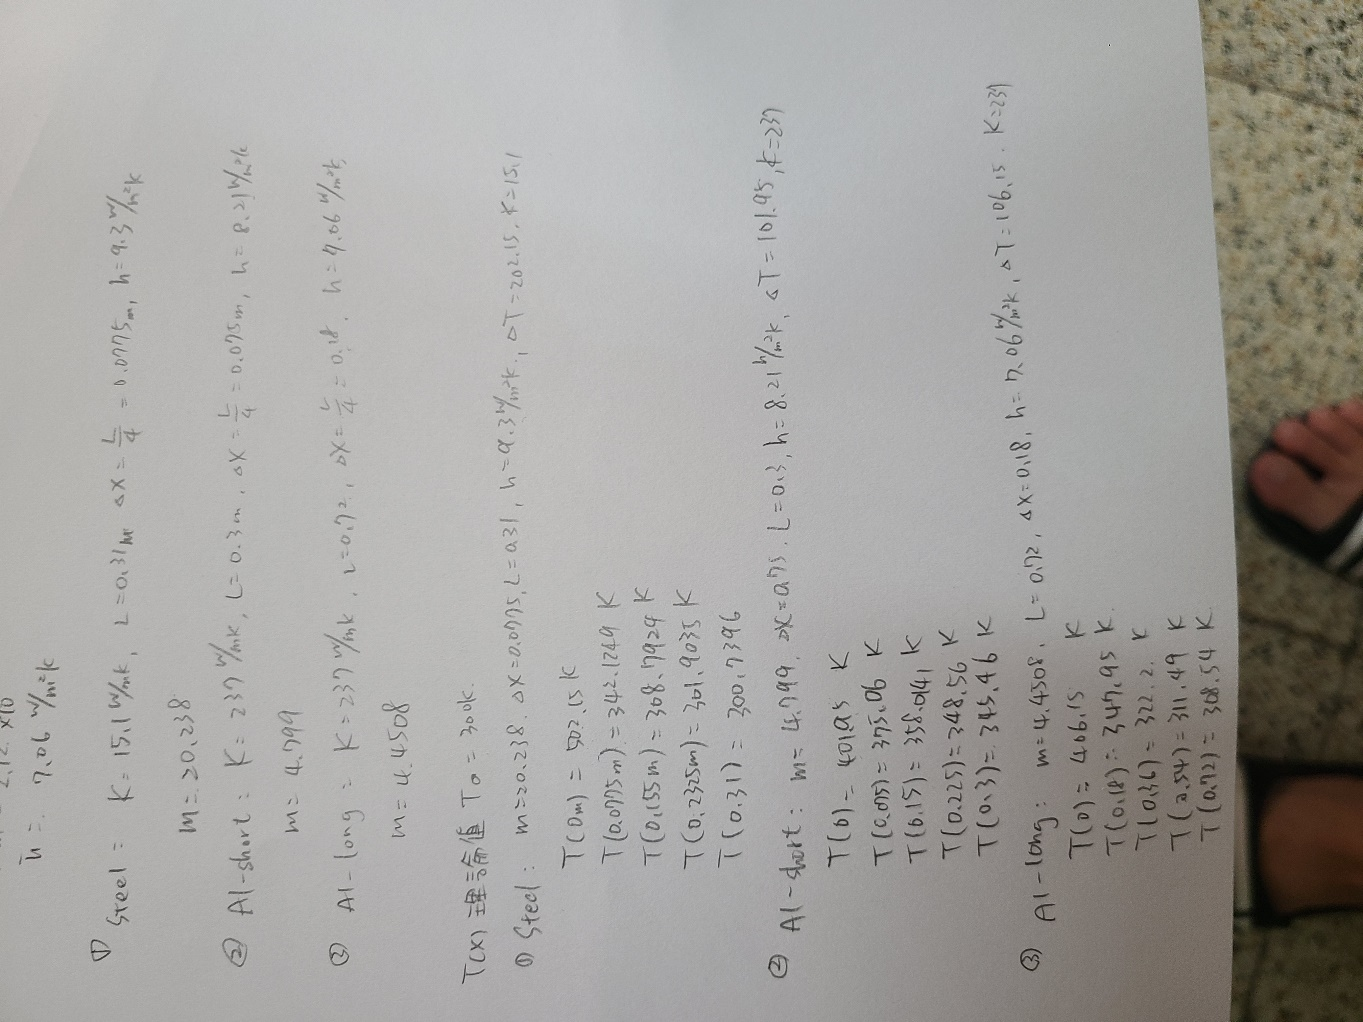 h = 7.06 W/m²k
① Steel : K = 15.1 W/mk, L = 0.31m Δx = L/4 = 0.0775m, h = 9.3 W/m²k
m = 20.238
② Al-short : K = 237 W/mk, L = 0.3m, Δx = L/4 = 0.075m, h = 8.21 W/m²k
m = 4.799
③ Al-long : K = 237 W/mk, L = 0.72, Δx = L/4 = 0.18, h = 7.06 W/m²k
m = 4.4508
T(x) 理論值 T₀ = 300k.
① Steel : m = 20.238. Δx = 0.0775, L = 0.31, h = 9.3 W/m²k, ΔT = 202.15, K = 15.1
T(0m) = 502.15 K
T(0.0775m) = 342.1249 K
T(0.155m) = 308.7924 K
T(0.2325m) = 301.9035 K
T(0.31) = 300.7396
② Al-short : m = 4.799. Δx = 0.75. L = 0.3, h = 8.21 W/m²k, ΔT = 101.95, K = 237
T(0) = 401.95 K
T(0.075) = 375.06 K
T(0.15) = 358.0141 K
T(0.225) = 348.56 K
T(0.3) = 345.46 K
③ Al-long : m = 4.4508. L = 0.72, Δx = 0.18, h = 7.06 W/m²k, ΔT = 106.15. K = 237
T(0) = 406.15 K
T(0.18) = 347.95 K
T(0.36) = 322.2. K
T(0.54) = 311.49 K
T(0.72) = 308.54 K